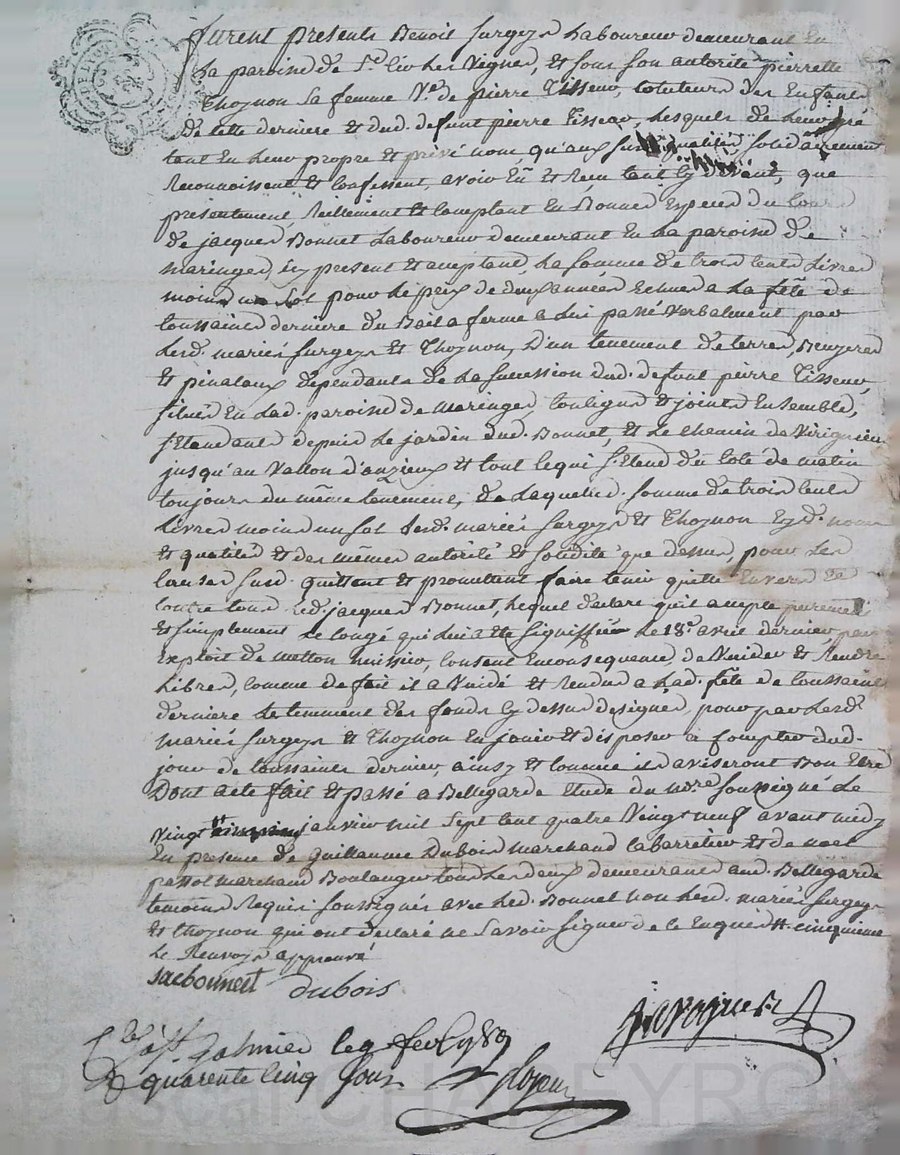 furent presents Benoit Surgeys Laboureur demeurant En
La paroisse de St Cir les Vignes, et sous son autorité pierrette
Thoynon sa femme Ve de pierre Tisseur, tuteurs des Enfants
de cette derniere et dud. defunt pierre Tisseur, Lesquels de leur gré
tant en leur propre et privé nom, qu'aux susd. qualités, solidairement
Reconnoissent et Confessent, avoir Eû et Reçu tant cy devant, que
presentement Reellement et Comptant En Bonnes Especes du Cours
de jacques Bonnet Laboureur demeurant En La paroisse de
maringes, icy present et acceptant, La somme de trois Cents Livres
moins un sol pour Le prix de deux années Echues a La fête de
toussaints derniere du Bail a ferme a Lui passé verbalement par
Lesd. mariés Surgeys et Thoynon, d'un tenement de terres, Bruyeres
et pinataux dependants de La succession dud. defunt pierre Tisseur,
situés En Lad. paroisse de Maringes, Contigus et joints Ensemble,
s'Etendants depuis Le jardin dud. Bonnet, et Le Chemin de Virigneu
jusqu'au Vallon d'anzieux et tout Ce qui s'Etend du Coté de matin
toujours du même tenement, de Laquelle d. somme de trois Cents
Livres moins un sol Lesd. mariés Surgeys et Thoynon Esd. noms
et qualités et des mêmes autorité et solidité que dessus, pour Les
Causes susd. quittent et promettent faire tenir quitte Envers Et
Contre tous Led. jacques Bonnet, Lequel declare qu'il accepte purement
et simplement Le Congé qui Lui a Eté signiffié Le 18e avril dernier par
Exploit de metton huissier, Consent En consequence, de Vuider et Rendre
Libres, Comme de fait il a Vuidé et Rendu a Lad. fête de toussaints
derniere Le tenement des fonds cy dessus designés, pour par Lesd.
mariés Surgeys et Thoynon En jouir et disposer a Compter dud.
jour de toussaints dernier, ainsy et Comme ils aviseront Bon Etre
Dont acte fait et passé a Bellegarde Etude du nore soussigné Le
Vingt janvier mil sept Cent quatre Vingt neuf avant midy
En presence de Guillaume Dubois marchand Cabarretier et de noel
marchand Boulanger tous Les deux demeurants aud. Bellegarde
temoins Requis soussignés avec Led. Bonnet non Lesd. mariés Surgeys
et Thoynon qui ont declaré ne savoir signer de ce Enquis # cinquieme
Le Renvoy approuvé
jacbonnest dubois
Galmier Le 9 fev. 1789
quarente Cinq sous
Pascal CHAMPEYRON